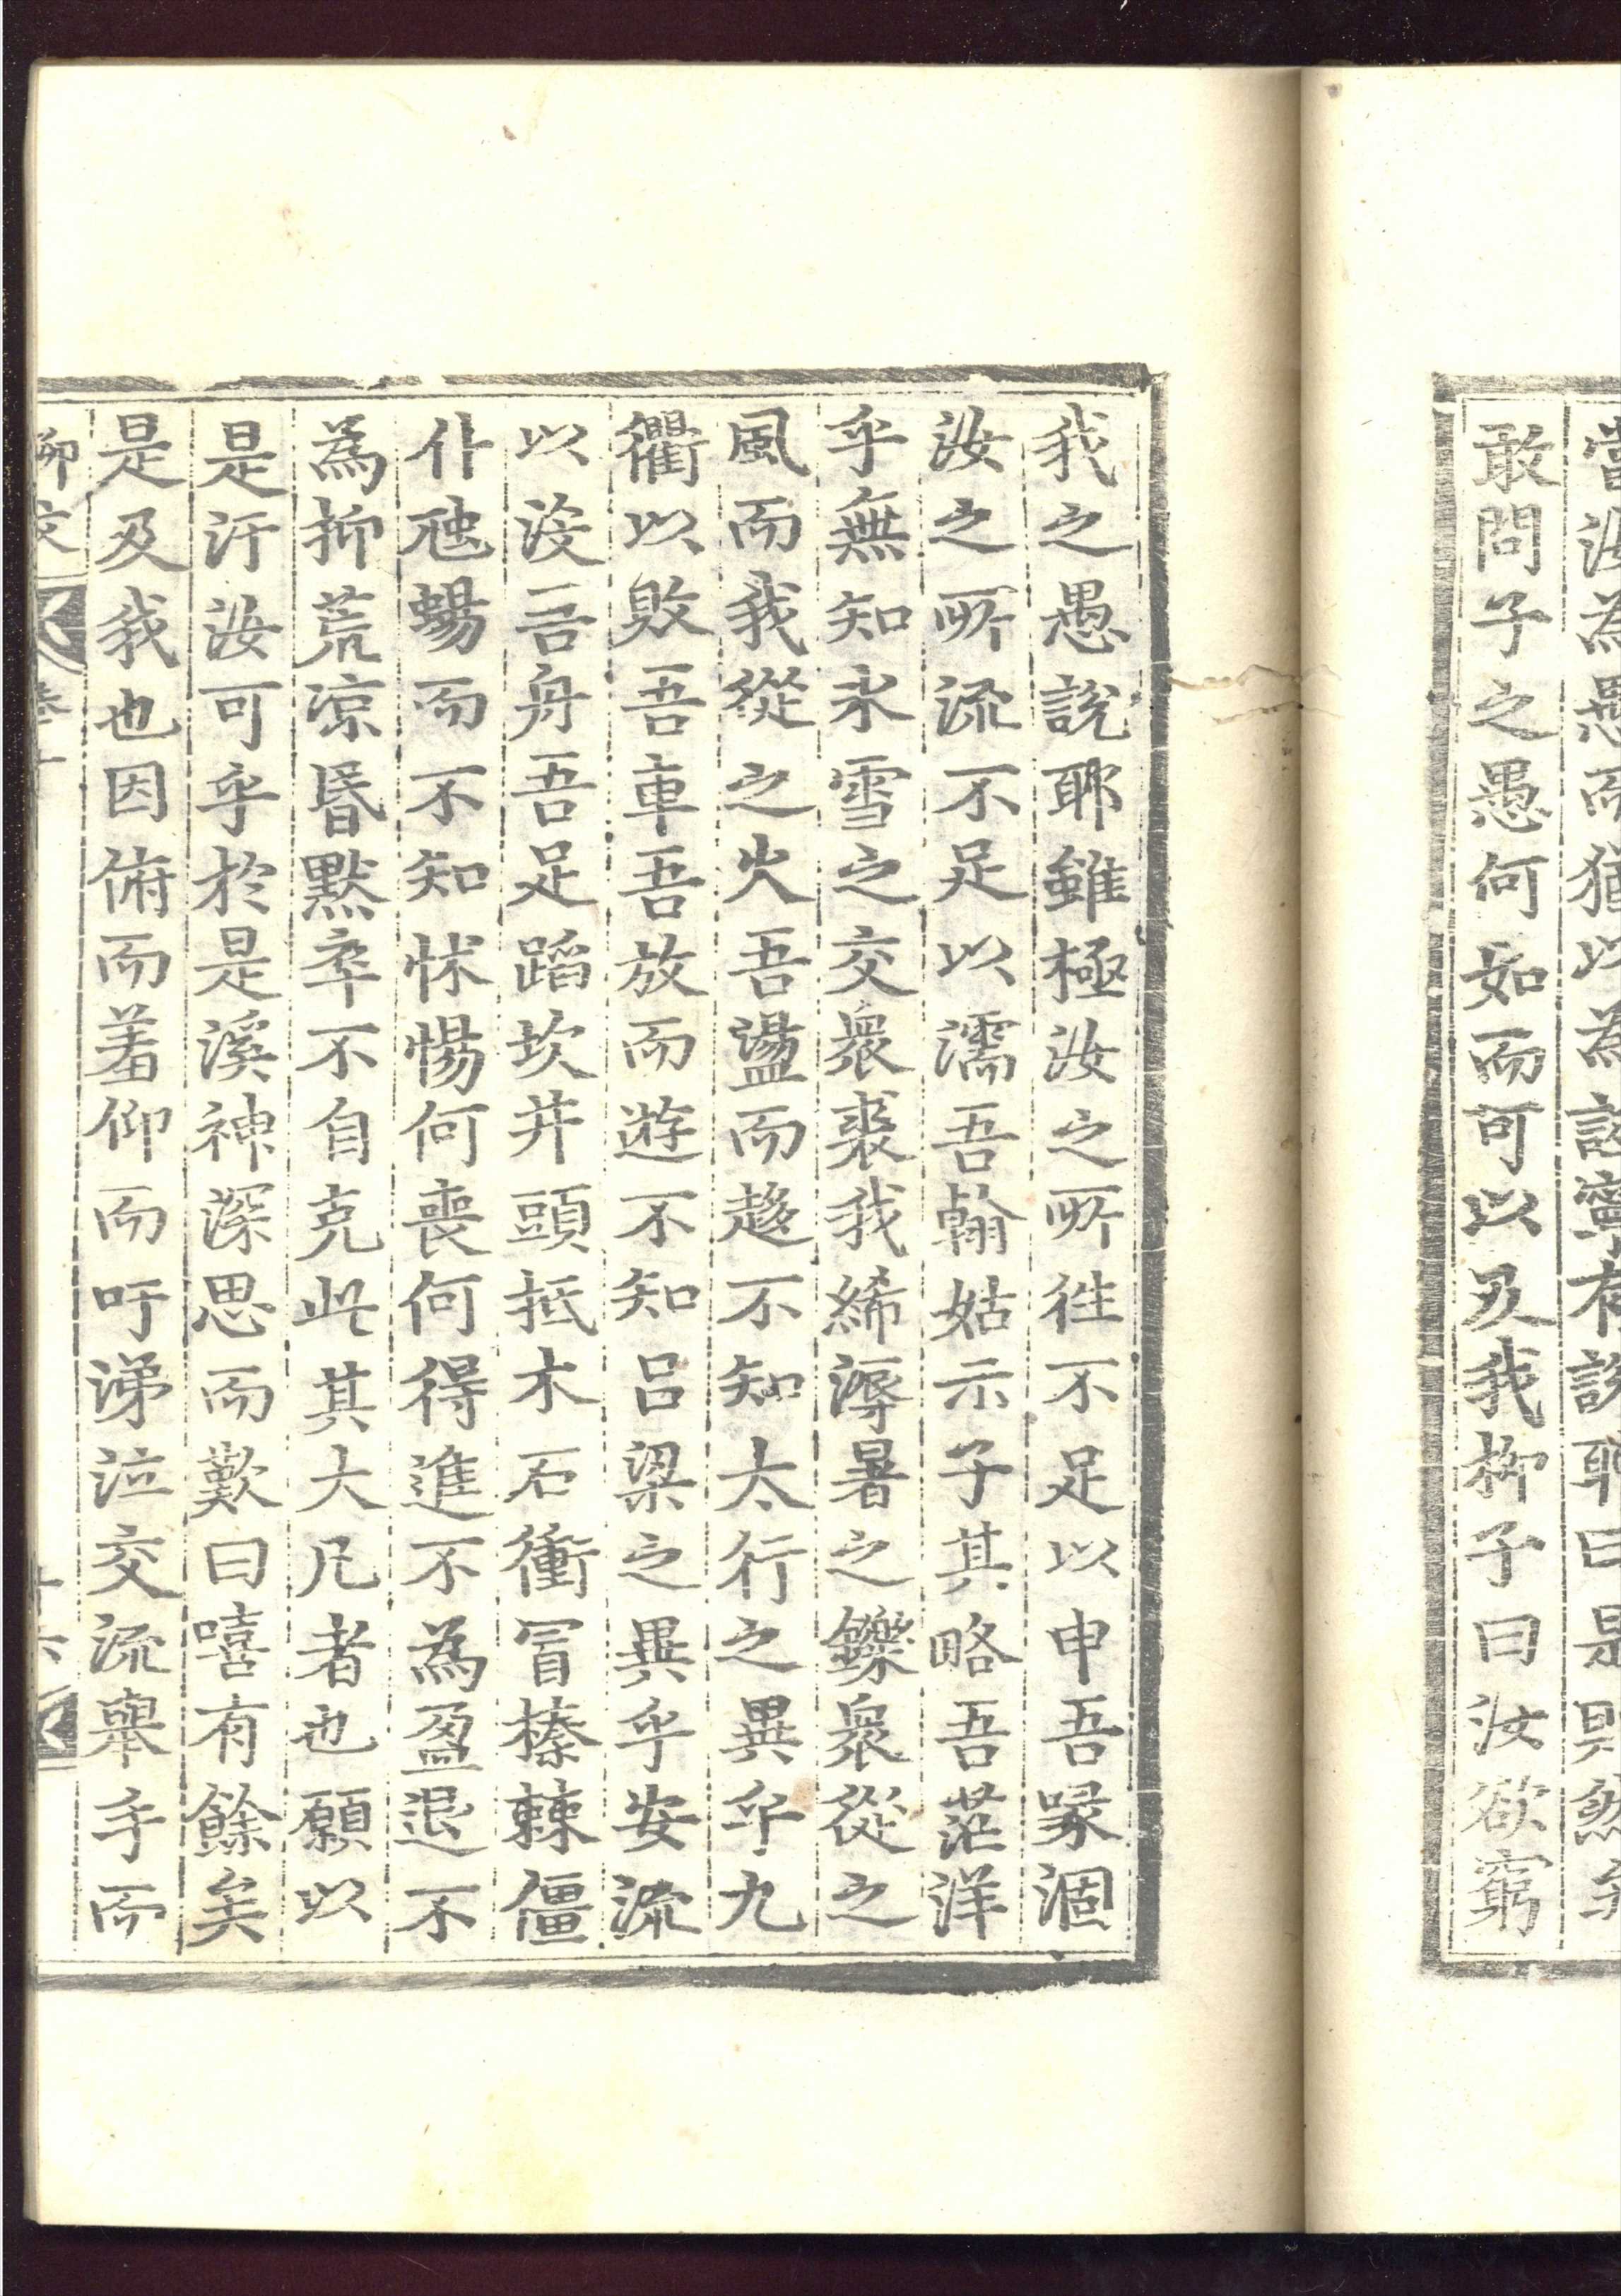 當汝為愚而猶以為誣寧有說耶曰是則然矣
敢問子之愚何如而可以及我柳子曰汝欲窮
我之愚說耶雖極汝之所往不足以申吾喙涸
汝之所流不足以濡吾翰姑示子其略吾茫洋
乎無知氷雪之交衆裘我絺溽暑之鑠衆從之
風而我從之火吾盪而趍不知太行之異乎九
衢以敗吾車吾放而遊不知吕梁之異乎安流
以沒吾舟吾足蹈坎井頭抵木石衝冒榛棘僵
仆虺蜴而不知怵惕何喪何得進不為盈退不
為抑荒凉昏默卒不自克此其大凡者也願以
是汙汝可乎於是溪神深思而歎曰嘻有餘矣
是及我也因俯而羞仰而吁涕泣交流舉手而
柳文 卷十 十六